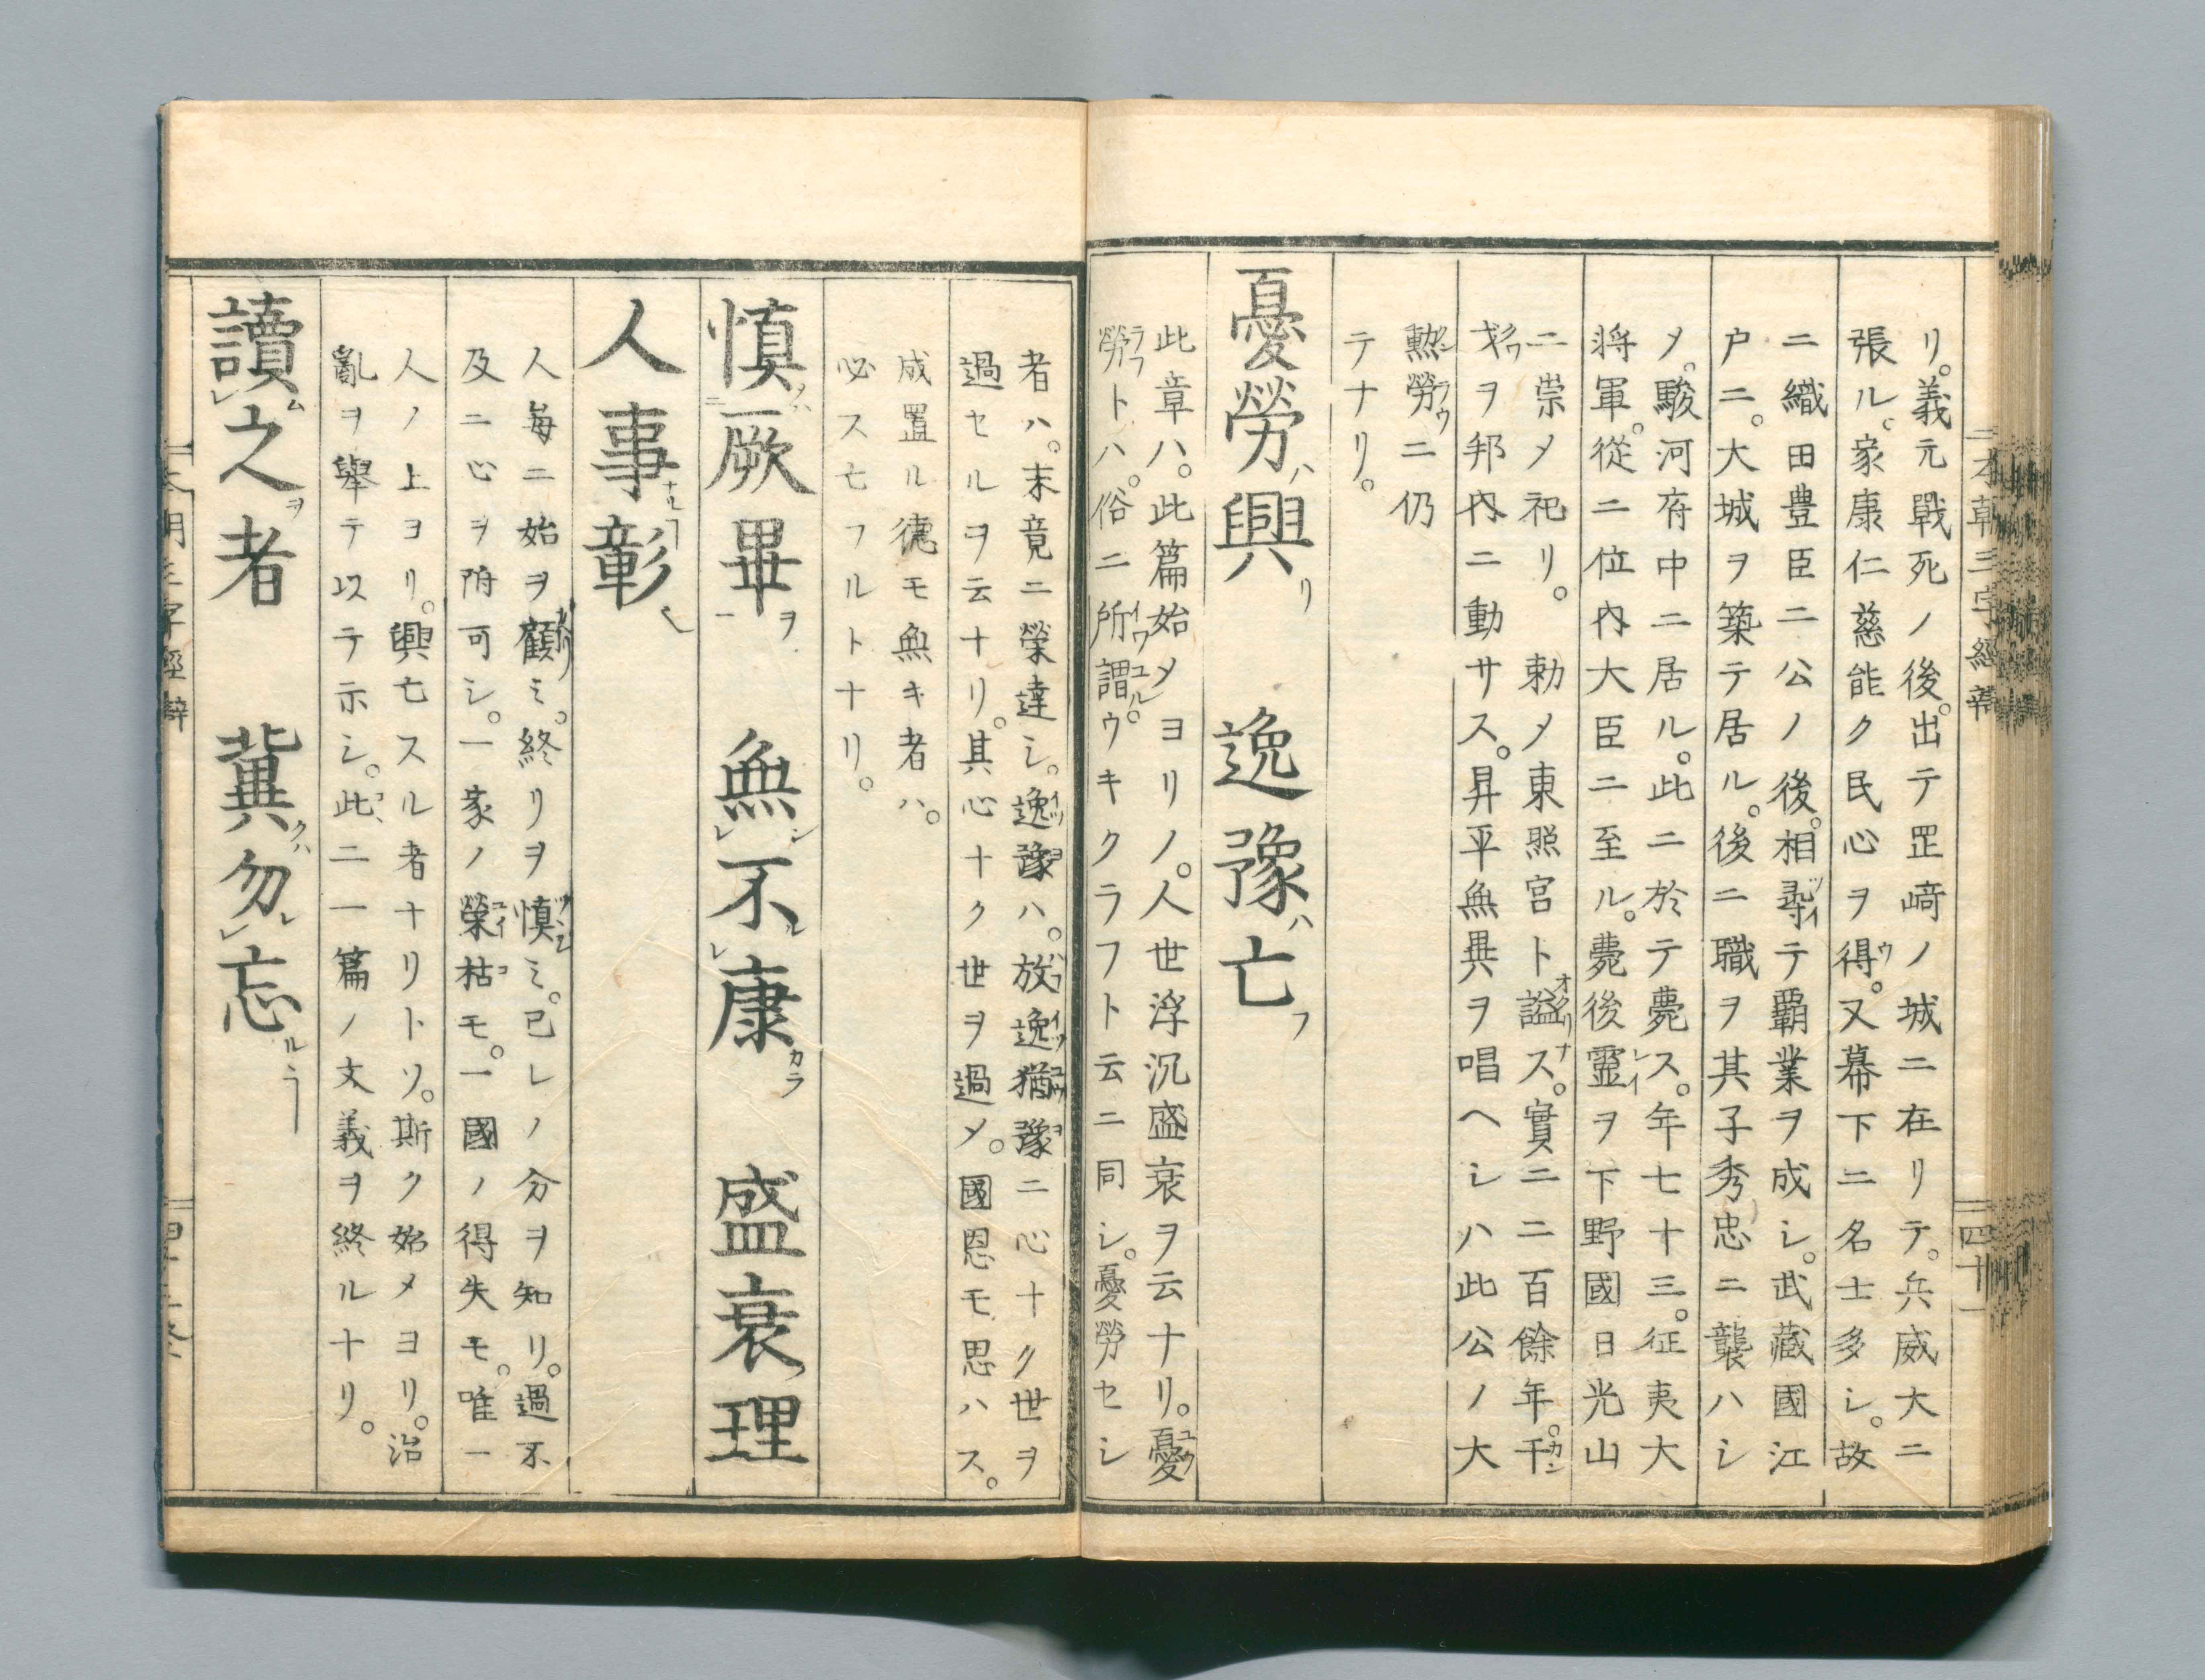 本朝三字經辯
四十一
リ。義元戰死ノ後。出テ罡﨑ノ城ニ在リテ。兵威大ニ
張ル。家康仁慈能ク民心ヲ得。又幕下ニ名士多シ。故
ニ織田豊臣二公ノ後。相尋テ覇業ヲ成シ。武藏國江
戸ニ。大城ヲ築テ居ル。後ニ職ヲ其子秀忠ニ襲ハシ
メ。駿河府中ニ居ル。此ニ於テ薨ス。年七十三。征夷大
将軍。從二位内大臣ニ至ル。薨後靈ヲ下野國日光山
ニ崇メ祀リ。勅メ東照宮ト謚ス。實ニ二百餘年。干
戈ヲ邦内ニ動サス。昇平無異ヲ唱ヘシハ此公ノ大
勲勞ニ仍
テナリ。
憂勞ハ興リ 逸豫ハ亡フ
此章ハ。此篇始メヨリノ。人世浮沉盛衰ヲ云ナリ。憂
勞トハ。俗ニ所謂。ウキクラフト云ニ同シ。憂勞セシ
者ハ。末竟ニ榮達シ。逸豫ハ。放逸猶豫ニ心ナク世ヲ
過セルヲ云ナリ。其心ナク世ヲ過メ。國恩モ思ハス。
成置ル德モ無キ者ハ。
必ス亡フルトナリ。
慎厥畢 無不康 盛衰理
人事彰
人每ニ始ヲ顧ミ。終リヲ慎ミ。己レノ分ヲ知リ。過不
及ニ心ヲ附可シ。一家ノ榮枯モ。一國ノ得失モ。唯一
人ノ上ヨリ。興亡スル者ナリトソ。斯ク始メヨリ。治
亂ヲ擧テ以テ示シ。此ニ一篇ノ文義ヲ終ルナリ。
讀之者 冀勿忘